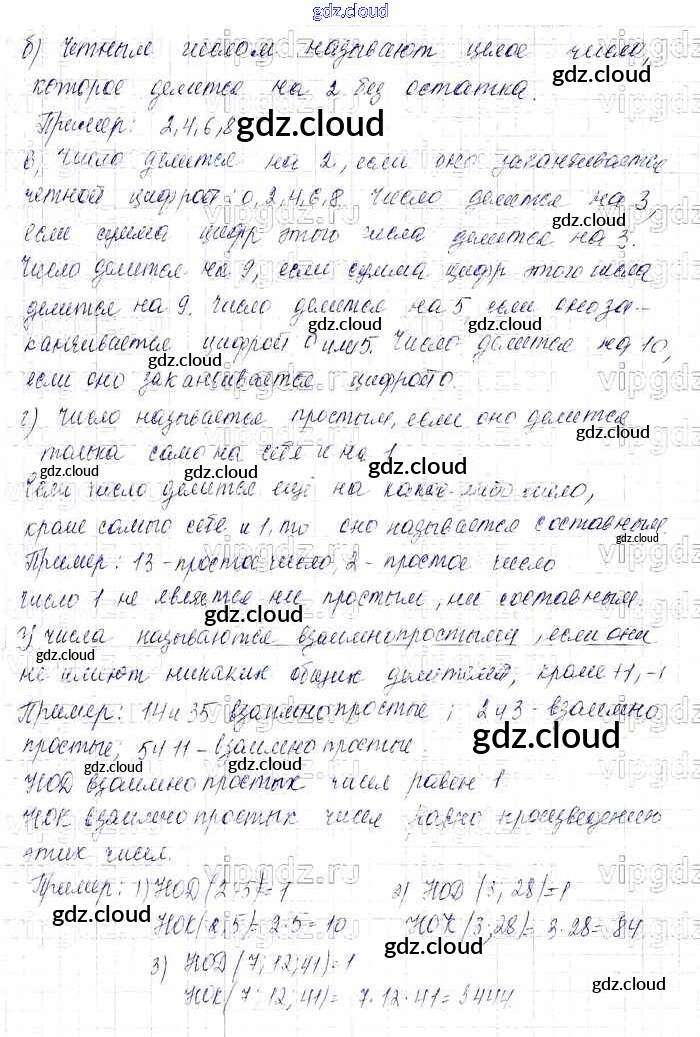 gdz.cloud
б) Четным числом называют целое число,
которое делится на 2 без остатка.
Пример: 2,4,6,8
в) Число делится на 2, если оно заканчивается
четной цифрой: 0,2,4,6,8. Число делится на 3,
если сумма цифр этого числа делится на 3.
Число делится на 9, если сумма цифр этого числа
делится на 9. Число делится на 5 если оно за-
канчивается цифрой 0 или 5. Число делится на 10,
если оно заканчивается цифрой 0.
г) Число называется простым, если оно делится
только само на себя и на 1
Если число делится ещё на какое-либо число,
кроме самого себя и 1, то оно называется составным
Пример: 13 - простое число, 2 - простое число
число 1 не является ни простым, ни составным.
числа называются взаимнопростыми, если они
не имеют никаких общих делителей, кроме +1, -1
Пример: 14 и 35 взаимнопростые; 2 и 3 - взаимно
простые; 5 и 11 - взаимно простые.
НОД взаимно простых чисел равен 1
НОК взаимно простых чисел равно произведению
этих чисел.
Пример: 1) НОД (2;5)=1 2) НОД (3,28)=1
НОК(2;5)= 2·5= 10 НОК (3;28)= 3·28= 84
3) НОД (7;12;41)=1
НОК(7;12;41)= 7·12·41= 3444